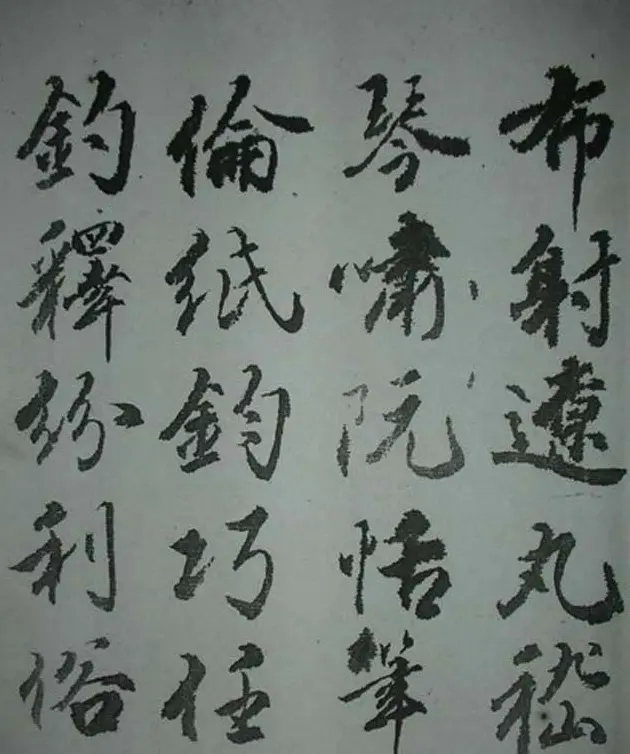 布射遼丸嵇
琴嘯阮恬筆
倫紙鈞巧任
釣釋紛利俗